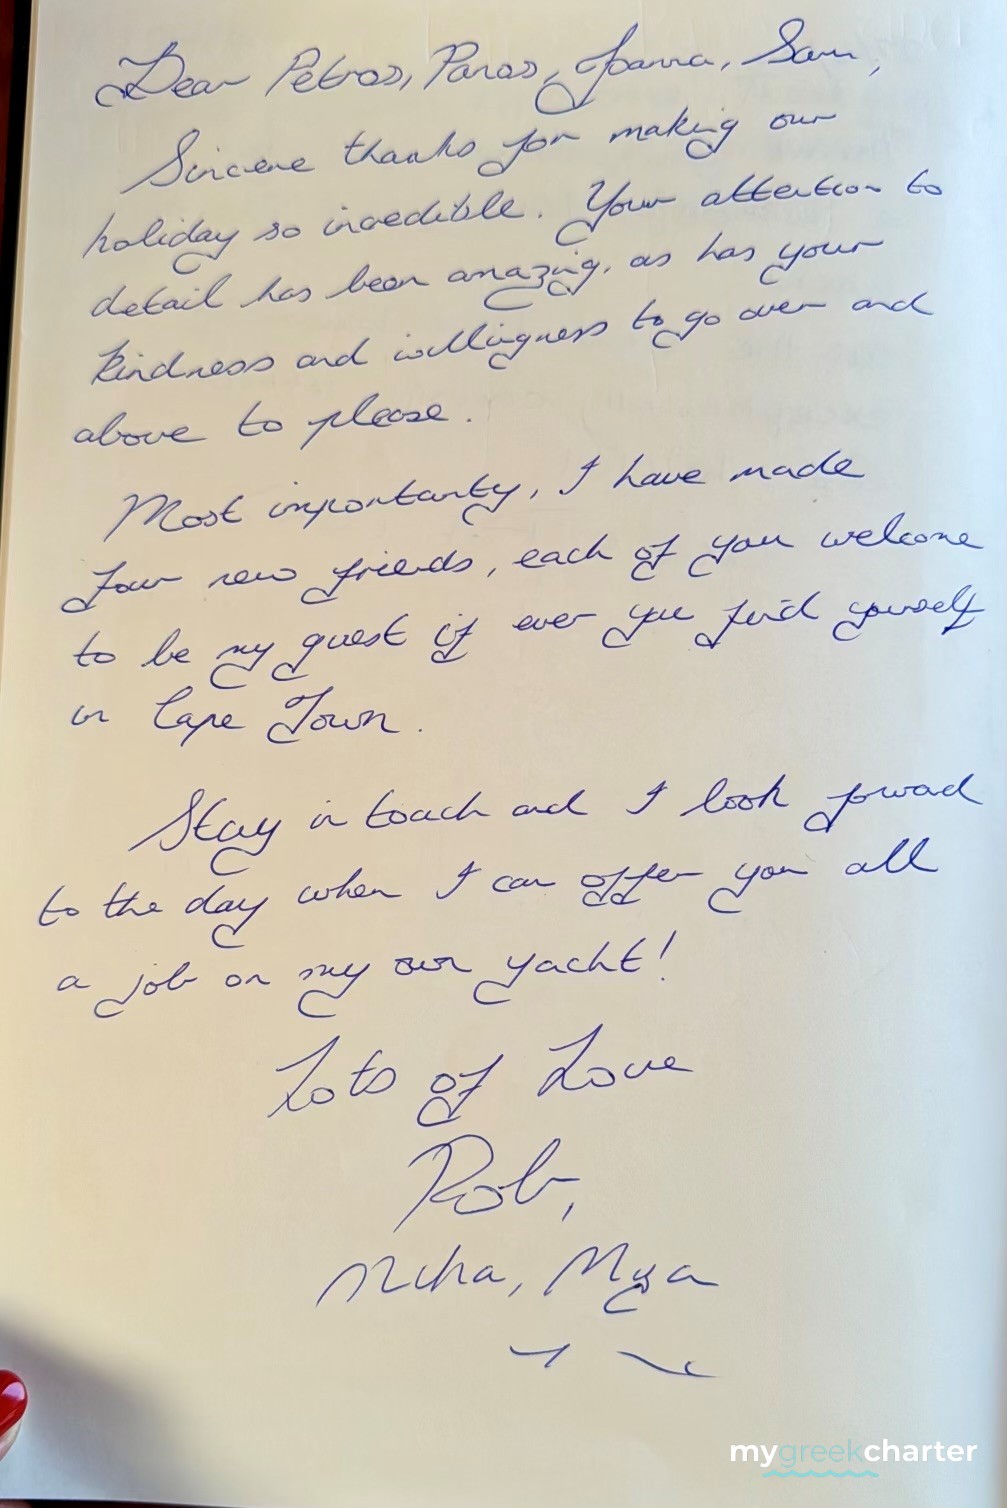 Dear Petros, Panos, Joanna, Sam,
Sincere thanks for making our
holiday so incredible. Your attention to
detail has been amazing, as has your
kindness and willingness to go over and
above to please.
Most importanty, I have made
four new friends, each of you welcome
to be my guest if ever you find yourself
in Cape Town.
Stay in touch and I look forward
to the day when I can offer you all
a job on my own yacht!
Lots of Love
Rob,
Mya
mygreekcharter